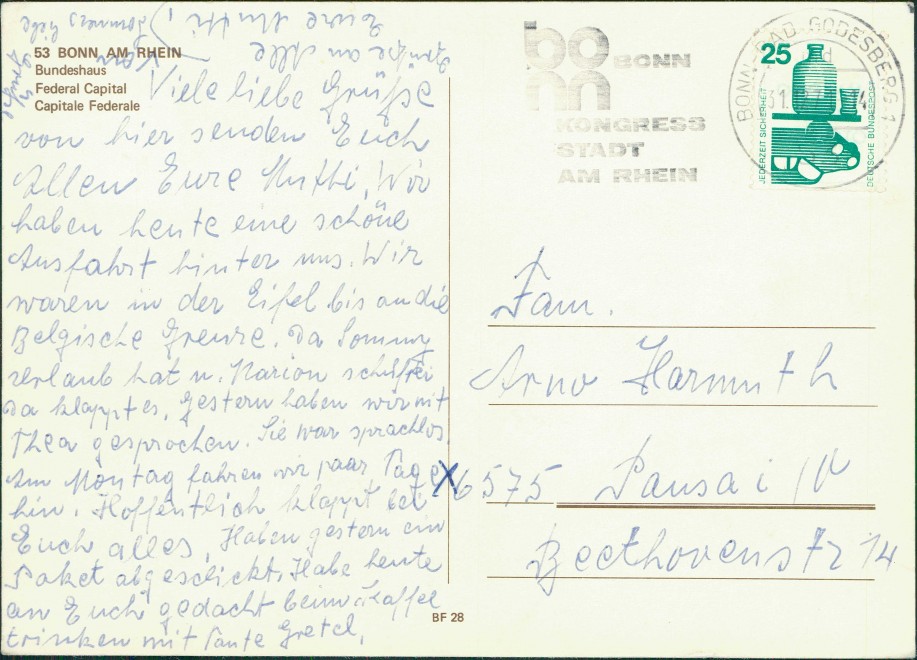 53 BONN AM RHEIN
Bundeshaus
Federal Capital
Capitale Federale
Viele liebe Grüße
von hier senden Euch
Allen Eure Mutti, Wir
haben heute eine schöne
Ausfahrt hinter uns. Wir
waren in der Eifel bis an die
Belgische Grenze. Da Sommy
Urlaub hat u. Marion schulfrei
da klappt es. Gestern haben wir mit
Thea gesprochen. Sie war sprachlos.
Am Montag fahren wir paar Tage
hin. Hoffentlich klappt bei
Euch alles, Haben gestern ein
Paket abgeschickt. Habe heute
an Euch gedacht beim Kaffee
trinken mit Tante Gretel.
Grüße an Alle
Eure Mutti
liebe
Grüße
bonn
BONN
KONGRESS
STADT
AM RHEIN
BONN-BAD GODESBERG 1
25
JEDERZEIT SICHERHEIT
DEUTSCHE BUNDESPOST
Fam.
Arno Harmuth
X 6575 Pausa i/V
Beethovenstr 14
BF 28